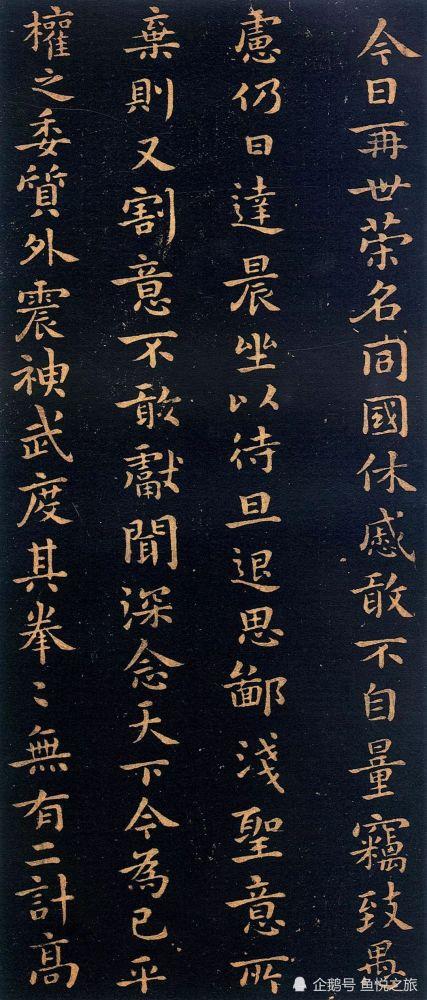 今日再世荣名同國休慼敢不自量竊致愚
慮仍日達晨坐以待旦退思鄙淺聖意所
棄則又割意不敢獻聞深念天下今為已平
權之委質外震神武度其拳〻無有二計高
企鹅号 鱼悦之旅